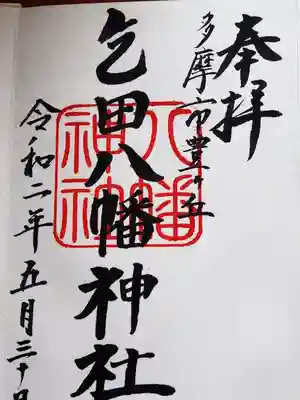 奉拝
多摩市豊ヶ丘
乞田八幡神社
八幡
神社
令和二年五月三十日